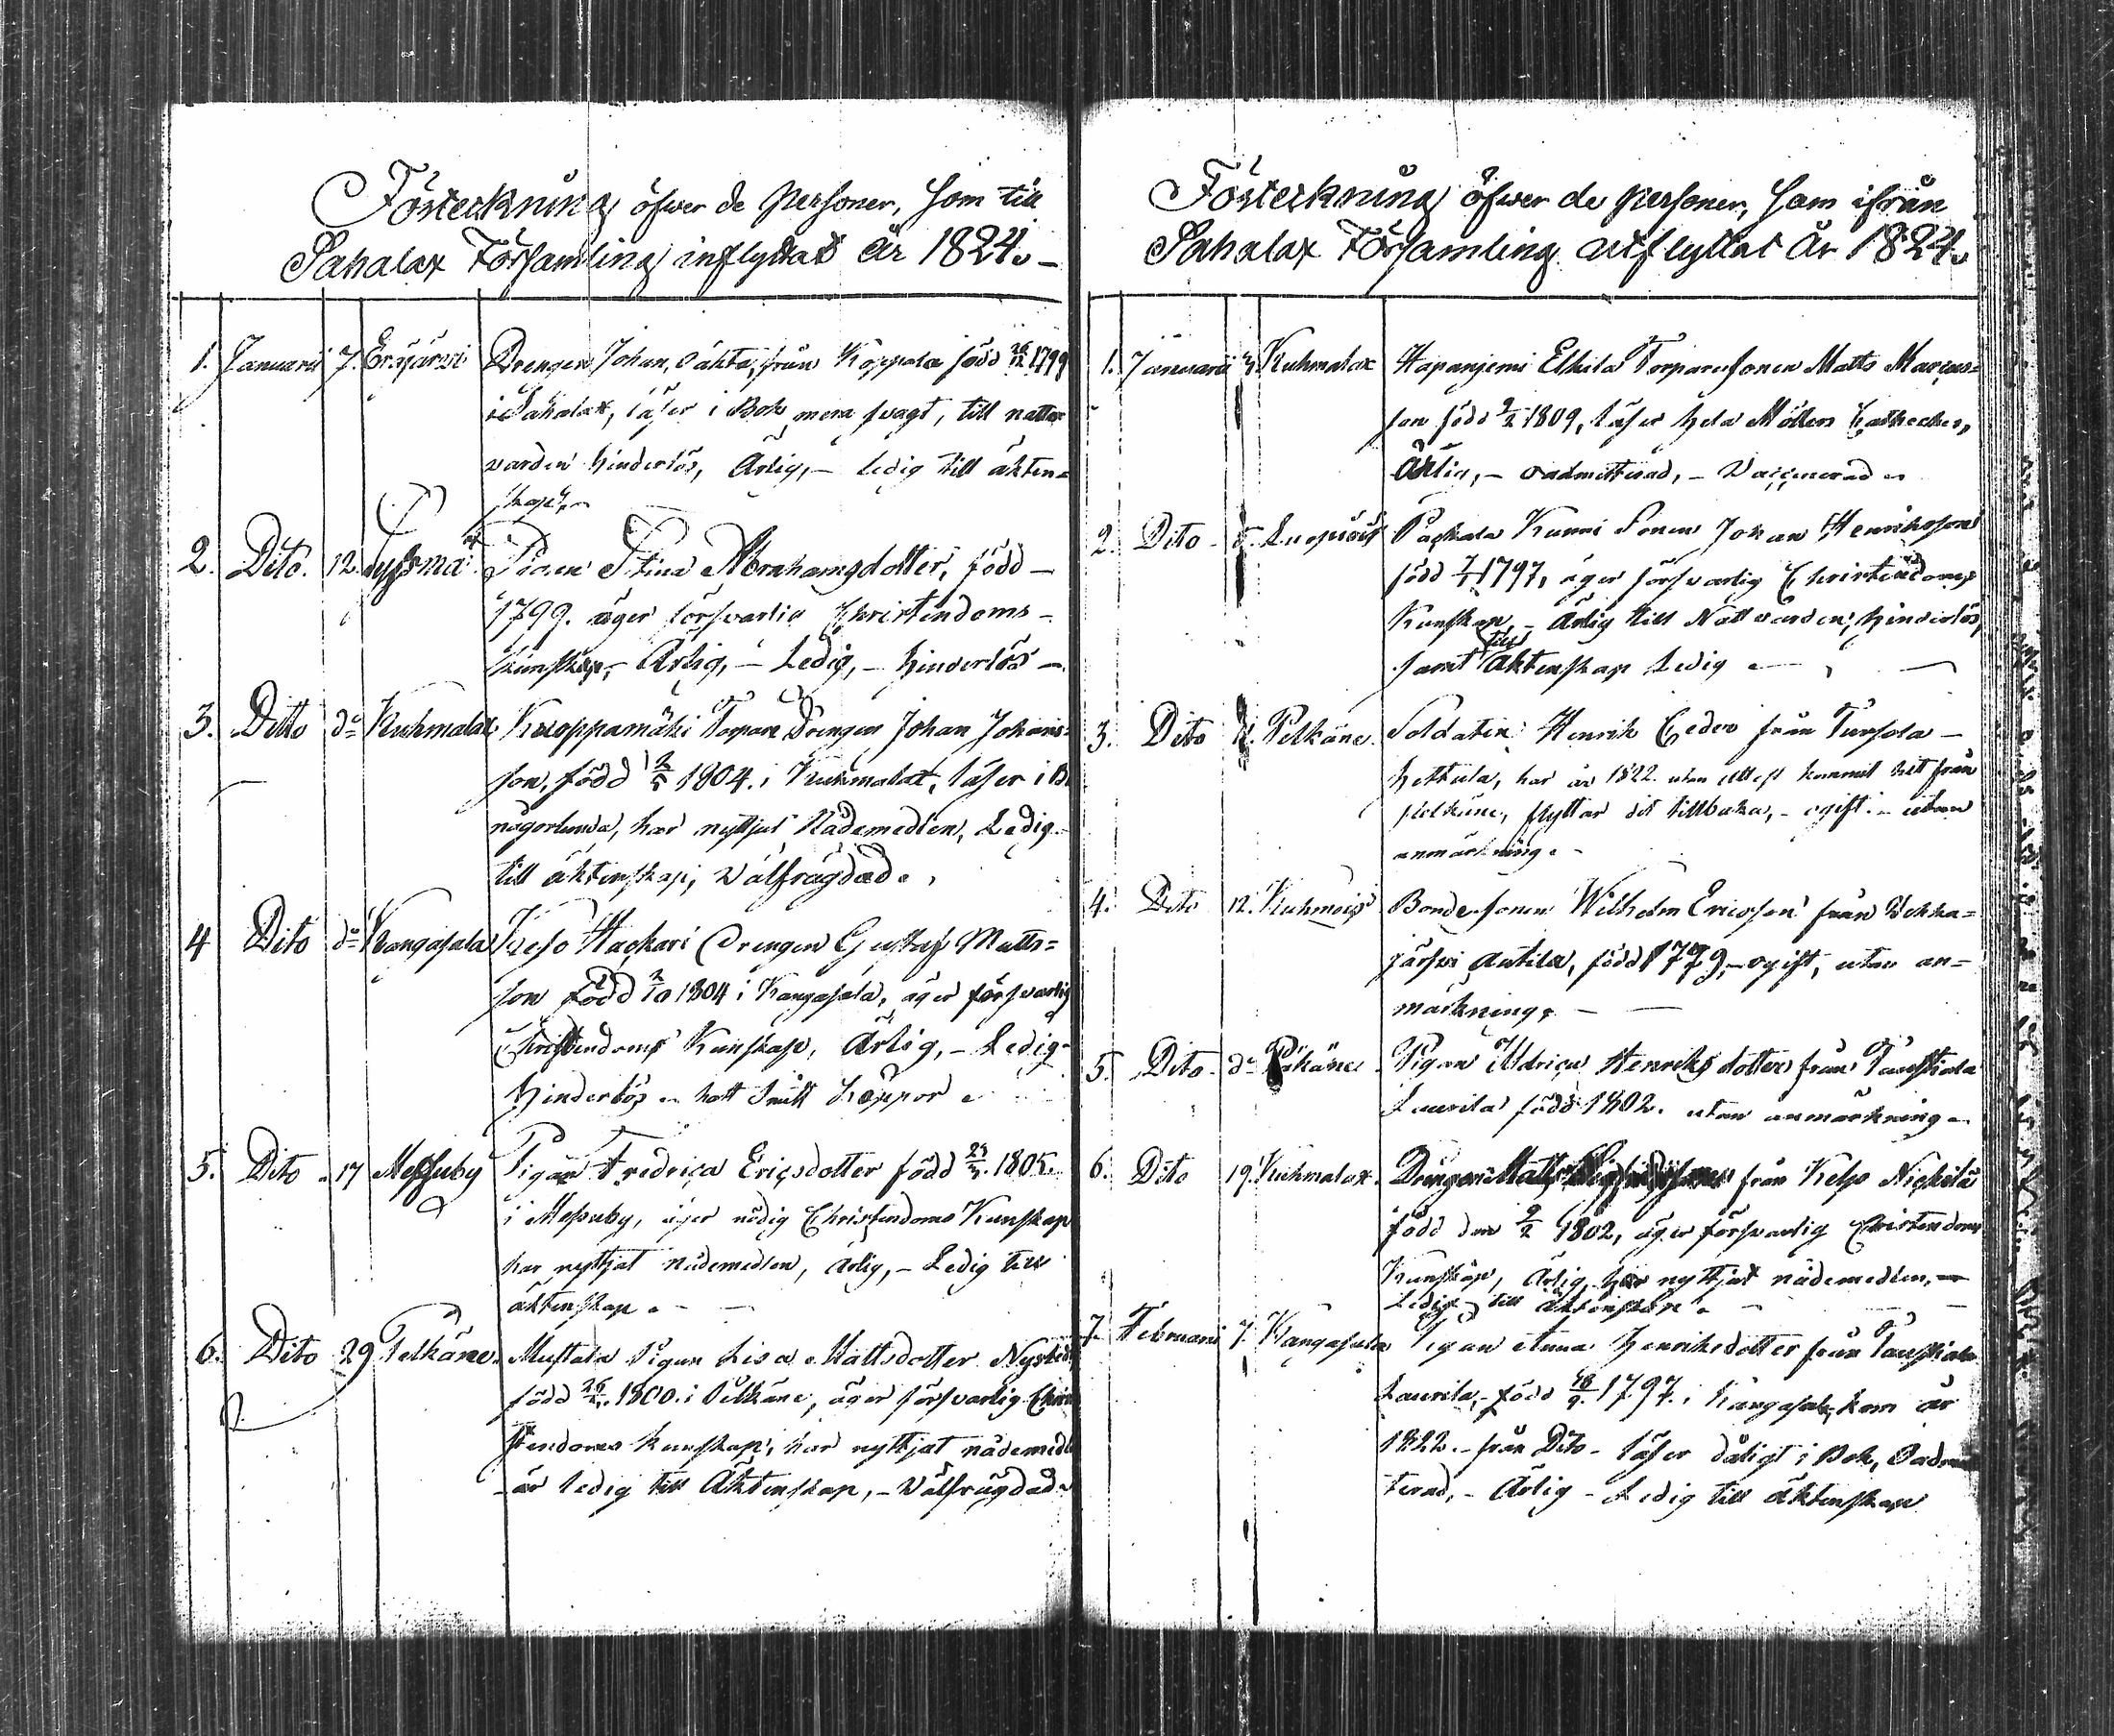 Förteckning öfwer de Personer, som till
Sahalax Församling inflyttat År 1824.
1. Januarii 7. Eräjärvi Drengen Johan, oäkta, från Koppala född 26/12 1799
i Sahalax, läser i Bok mera svagt, till nattvarden
hinderlös, Ärlig, – Ledig till äkten=
skap. –
2. Dito. 12. Pigan Stina Abrahamsdotter, född –
1799. äger försvarlig Christendoms –
kunskap, – Ärlig, – Ledig, – hinderlös –
3. Ditto do Kuhmalax Kuoppamäki Torpare Drengen Johan Johans=
son, född 1804. i Kuhmalax, läser i B
någorlunda, har nyttjat Nådemedlen, Ledig
till äktenskap, Välfrägdad.
4 Dito do Kangasala Keso Hackari Drengen Gustaf Matts=
son född 2/10 1804 i Kangasala, äger försvarlig
Christendoms Kunskap, Ärlig, – Ledig –
Hinderlös – haft Smitt Koppor
5. Dito 17 Messuby Pigan Fredrica Ericsdotter född 1805.
i Messuby, äger nödig Christendoms Kunskap
har nyttjat nådemedlen, ärlig, – Ledig till
äktenskap.
6. Dito 29 Pelkäne. Mustala Pigan Lisa Mattsdotter
född 1800. i Pelkäne, äger försvarlig Chris
tendoms kunskap, har nyttjat nådemedl
är ledig till Äktenskap, – Välfrägdad
Förteckning öfwer de Personer, som ifrån
Sahalax Församling utflyttat År 1824.
1. Januarii Kuhmalax Hapanjemi Elkila Torparesonen Matts Marcus=
son född 9/2 1809, läser hela Catheches,
Ärlig, – oadmitterad, – Vaccinerad
2. Dito Luopiois Packala Kunni Sonen Johan Henriksson
född 1797, äger försvarlig Christendoms
Kunskap, – Ärlig till Nattvarden, hinderlös,
samt till Äktenskap Ledig
3. Dito Pelkäne. Soldaten Henrik Ceder från
Hettula, har år 1822. utan attest kommit hit från
Pelkäne, flyttar dit tillbaka, – ogift – utan
anmärkning. –
4. Dito 12. Kuhmois Bondesonen Wilhelm Ericsson från Vehka=
järfwi Antila, född 1779, – ogift, utan an=
märkning. –
5. Dito do Pälkäne Pigan Uldrica Henriksdotter från Pauskala
Laurila född 1802. utan anmärkning
6. Dito 19. Kuhmalax. Drengen Matts från Keljo Nickilä
född den 9/2 1802, äger försvarlig Christendoms
Kunskap, Ärlig, har nyttjat nådemedlen, –
Ledig till äktenskap.
7. Februarii 7. Kangasala Pigan Anna Henriksdotter från Pauskala
Laurila, född 1797. i Kangasala, kom år
1822. – från Dito – läser dåligt i Bok, Oadmit
terad, – Ärlig – Ledig till äktenskap